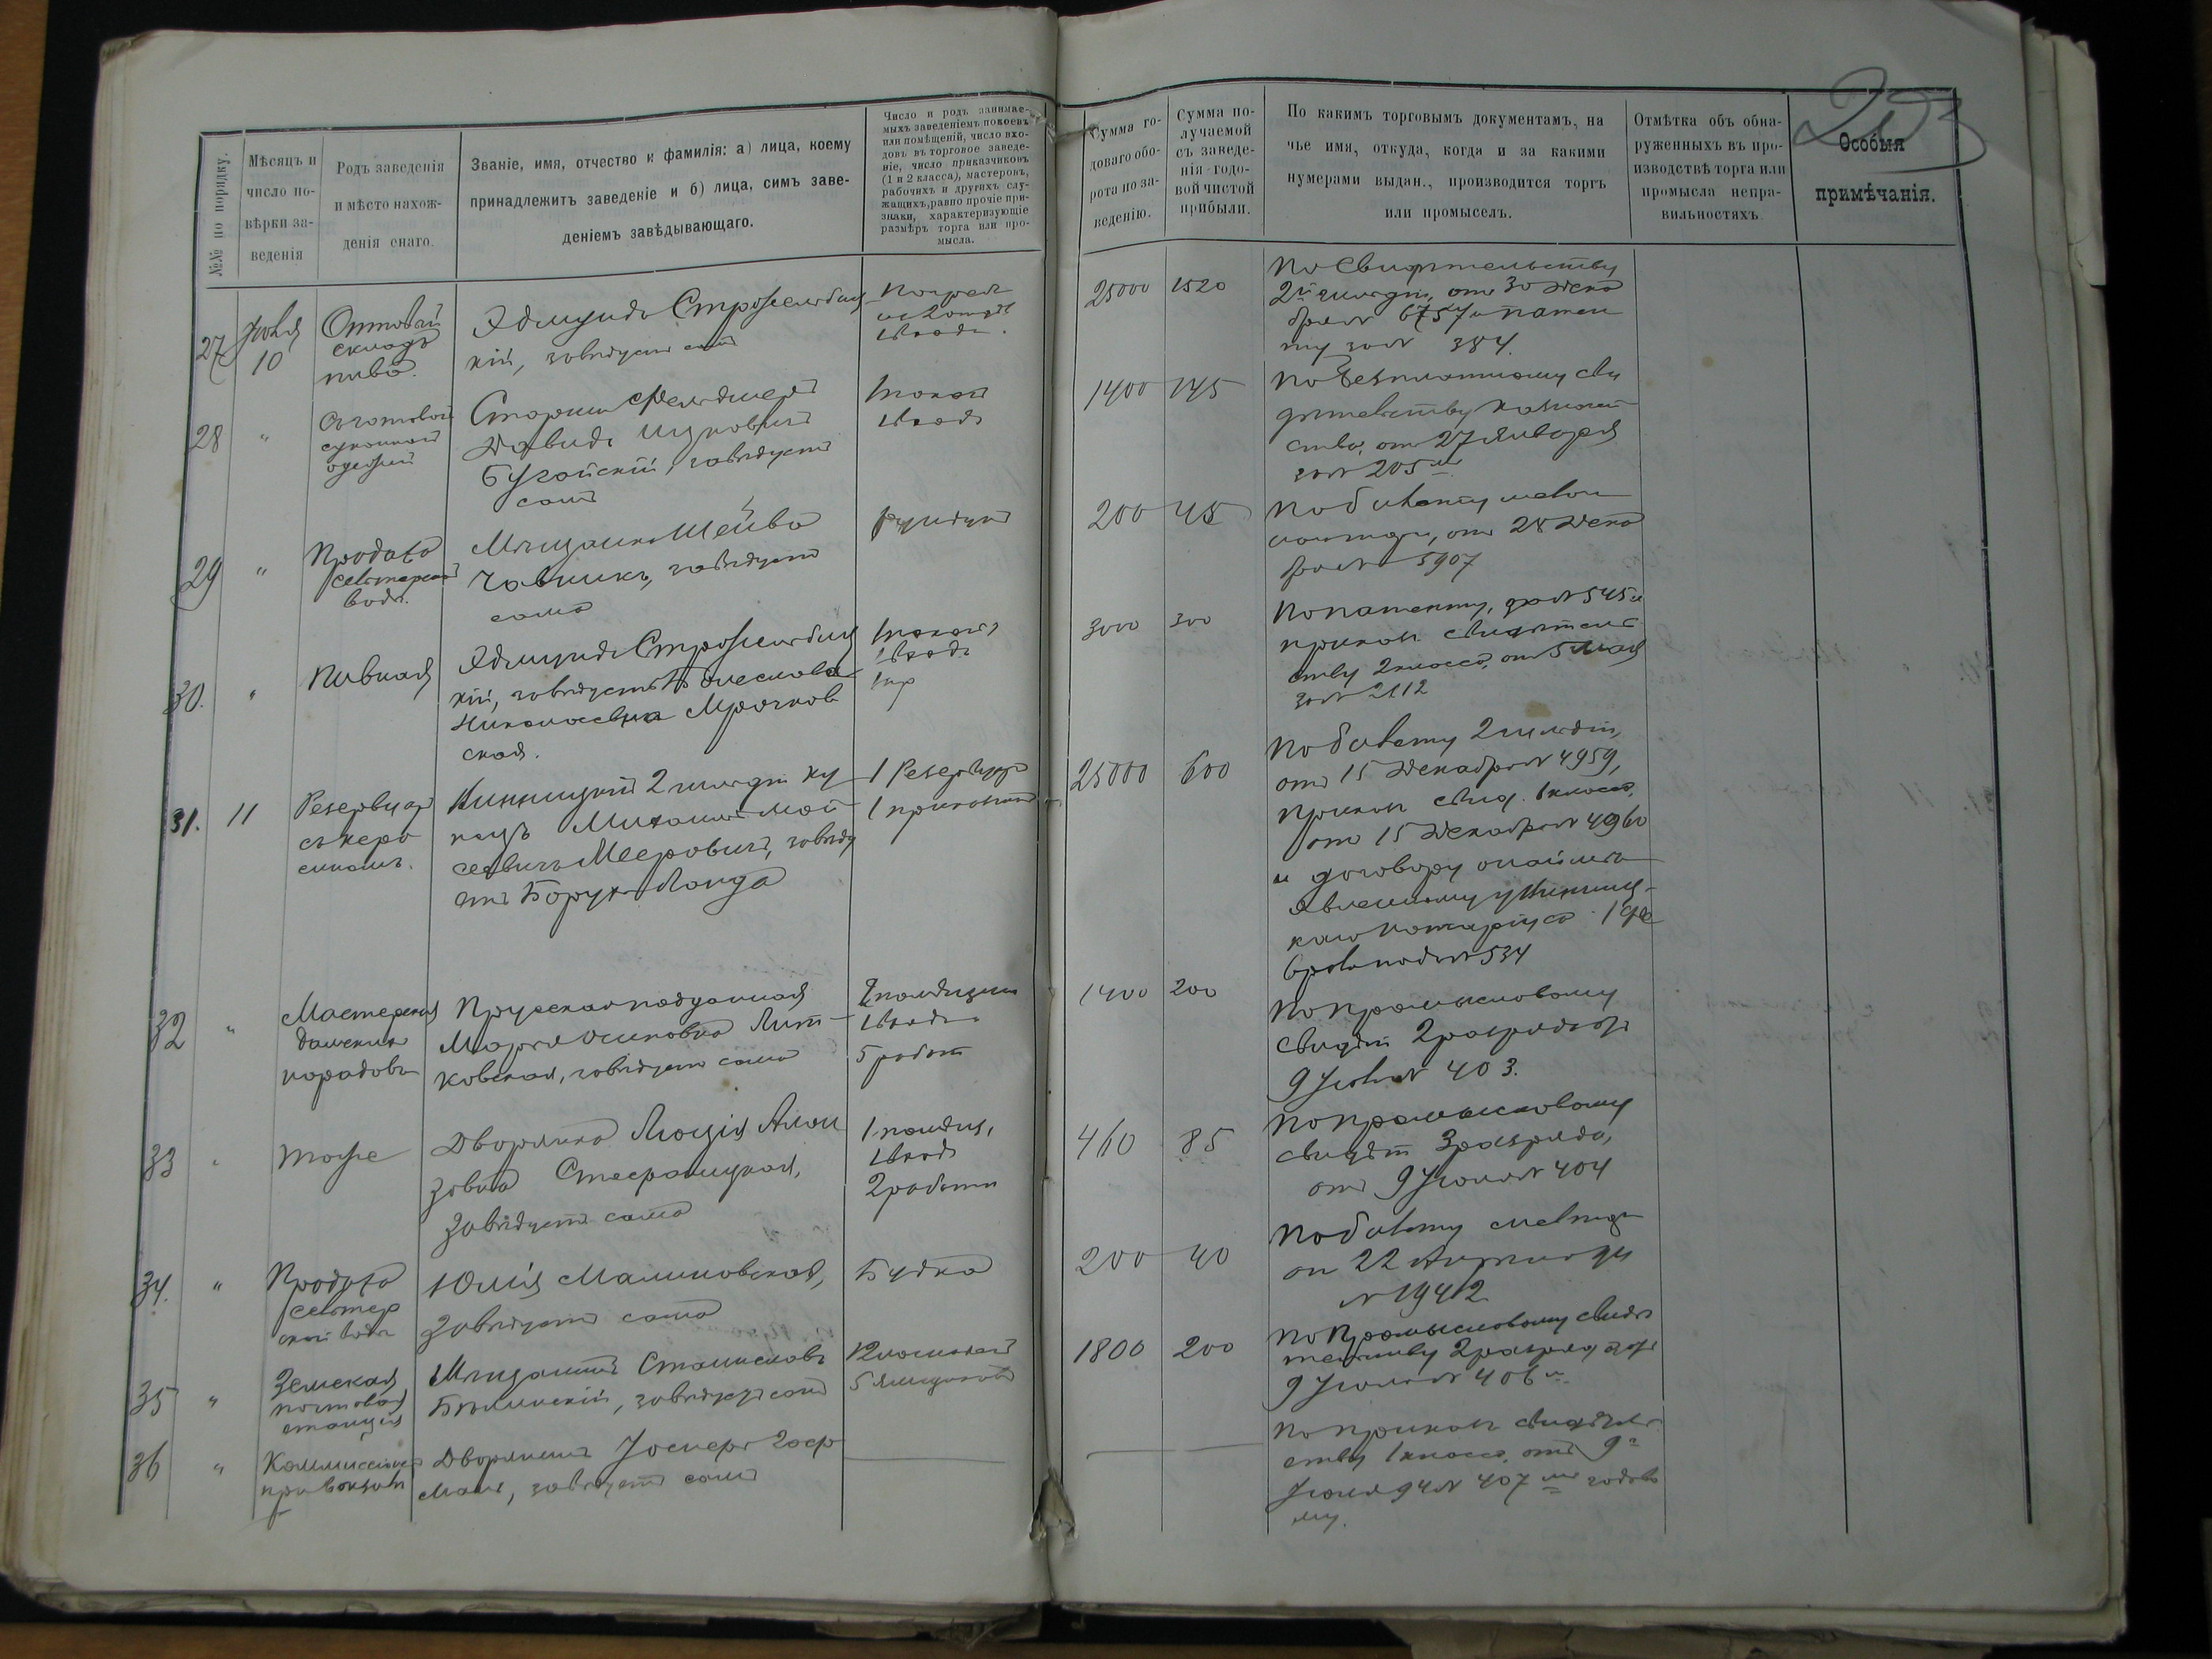 203
№№ по порядку.
Мѣсяцъ и
число по-
вѣрки за-
веденія
Родъ заведенія
и мѣсто нахож-
денія онаго.
Званіе, имя, отчество и фамилія: а) лица, коему
принадлежитъ заведеніе и б) лица, симъ заве-
деніемъ завѣдывающаго.
Число и родъ занимае-
мыхъ заведеніемъ покоевъ
или помѣщеній, число вхо-
довъ въ торговое заведе-
ніе, число приказчиковъ
(1 и 2 класса), мастеровъ,
рабочихъ и другихъ слу-
жащихъ, равно прочіе при-
знаки, характеризующіе
размѣръ торга или про-
мысла.
Сумма го-
доваго обо-
рота по за-
веденію.
Сумма по-
лучаемой
съ заведе-
нія годо-
вой чистой
прибыли.
По какимъ торговымъ документамъ, на
чье имя, откуда, когда и за какими
нумерами выдан., производится торгъ
или промыселъ.
Отмѣтка объ обна-
руженныхъ въ про-
изводствѣ торга или
промысла непра-
вильностяхъ.
Особыя
примѣчанія.
27
Іюля
10
Оптовый
складъ
пива.
Эдмундъ
кій, завѣдуетъ самъ
25000
1520
По Свидѣтельству
2й гильдіи, отъ 30 Дека
бря № 6757 и патен
ту за № 384.
28
"
одежи
Давидъ Ицковичъ
завѣдуетъ
самъ
1 покой
1 входъ
1400
145
По безплатному сви
дѣтельству
отъ 27 Января
за № 205
29
"
Продажа
сельтерской
воды.
Мѣщанка Шейва
завѣдуетъ
сама
200
45
По билету мелоч
отъ 28 Дека
бря № 5907
30.
"
Пивная
Эдмундъ
кій, завѣдуетъ
Николаевна Мрочков
ская.
1 покой
1 входъ
1 пр
3000
300
По патенту, за № 545 и
приказч свидѣтель
ству 2 класса, отъ 5 Мая
за № 2112
31.
11
Резервуаръ
съ керо
синомъ.
Винницкій 2 гильдіи ку
пецъ Михаилъ Мой
сеевичъ Мееровичъ, завѣду
етъ Борухъ Ланда
1 Резервуаръ
1 приказчикъ
25000
600
По билету 2 гильдіи,
отъ 15 Декабря № 4959,
приказч свид. 1 класса,
отъ 15 Декабря № 4960
и договору о найме
явленному у Винниц-
каго Нотаріуса 1 Фе
враля подъ № 534
32
"
Мастерская
дамскихъ
нарядовъ
Прусская подданная
Марія Осиповна Лит
ковская, завѣдуетъ сама
1 входъ
5 работ
1400
200
По промысловому
свидѣт 2 разряда отъ
9 Іюля № 403.
33
"
тоже
Дворянка Люція Алои
зовна
Завѣдуетъ сама
1 входъ
2 работн
460
85
По промысловому
свидѣт 3 разряда,
отъ 9 Іюля № 404
34.
"
Продажа
сельтер
ской воды
Юлія Малиновская,
Завѣдуетъ сама
Будка
200
40
По билету
от 22 Апрѣля за
№ 1942
35
"
Земская
почтовая
станція
Мѣщанинъ Станиславъ
завѣдуетъ самъ
12 лошадей
5 ямщиковъ
1800
200
По промысловому свидѣ
тельству 2 разряда отъ
9 Іюля № 406
36
"
Коммиссіонеръ
при вокзалѣ
Дворянинъ Іосифъ Гоф
манъ, завѣдуетъ самъ
По приказч свидѣтель
ству 1 класса, отъ 9
Іюля 94 № 407 годово
му.